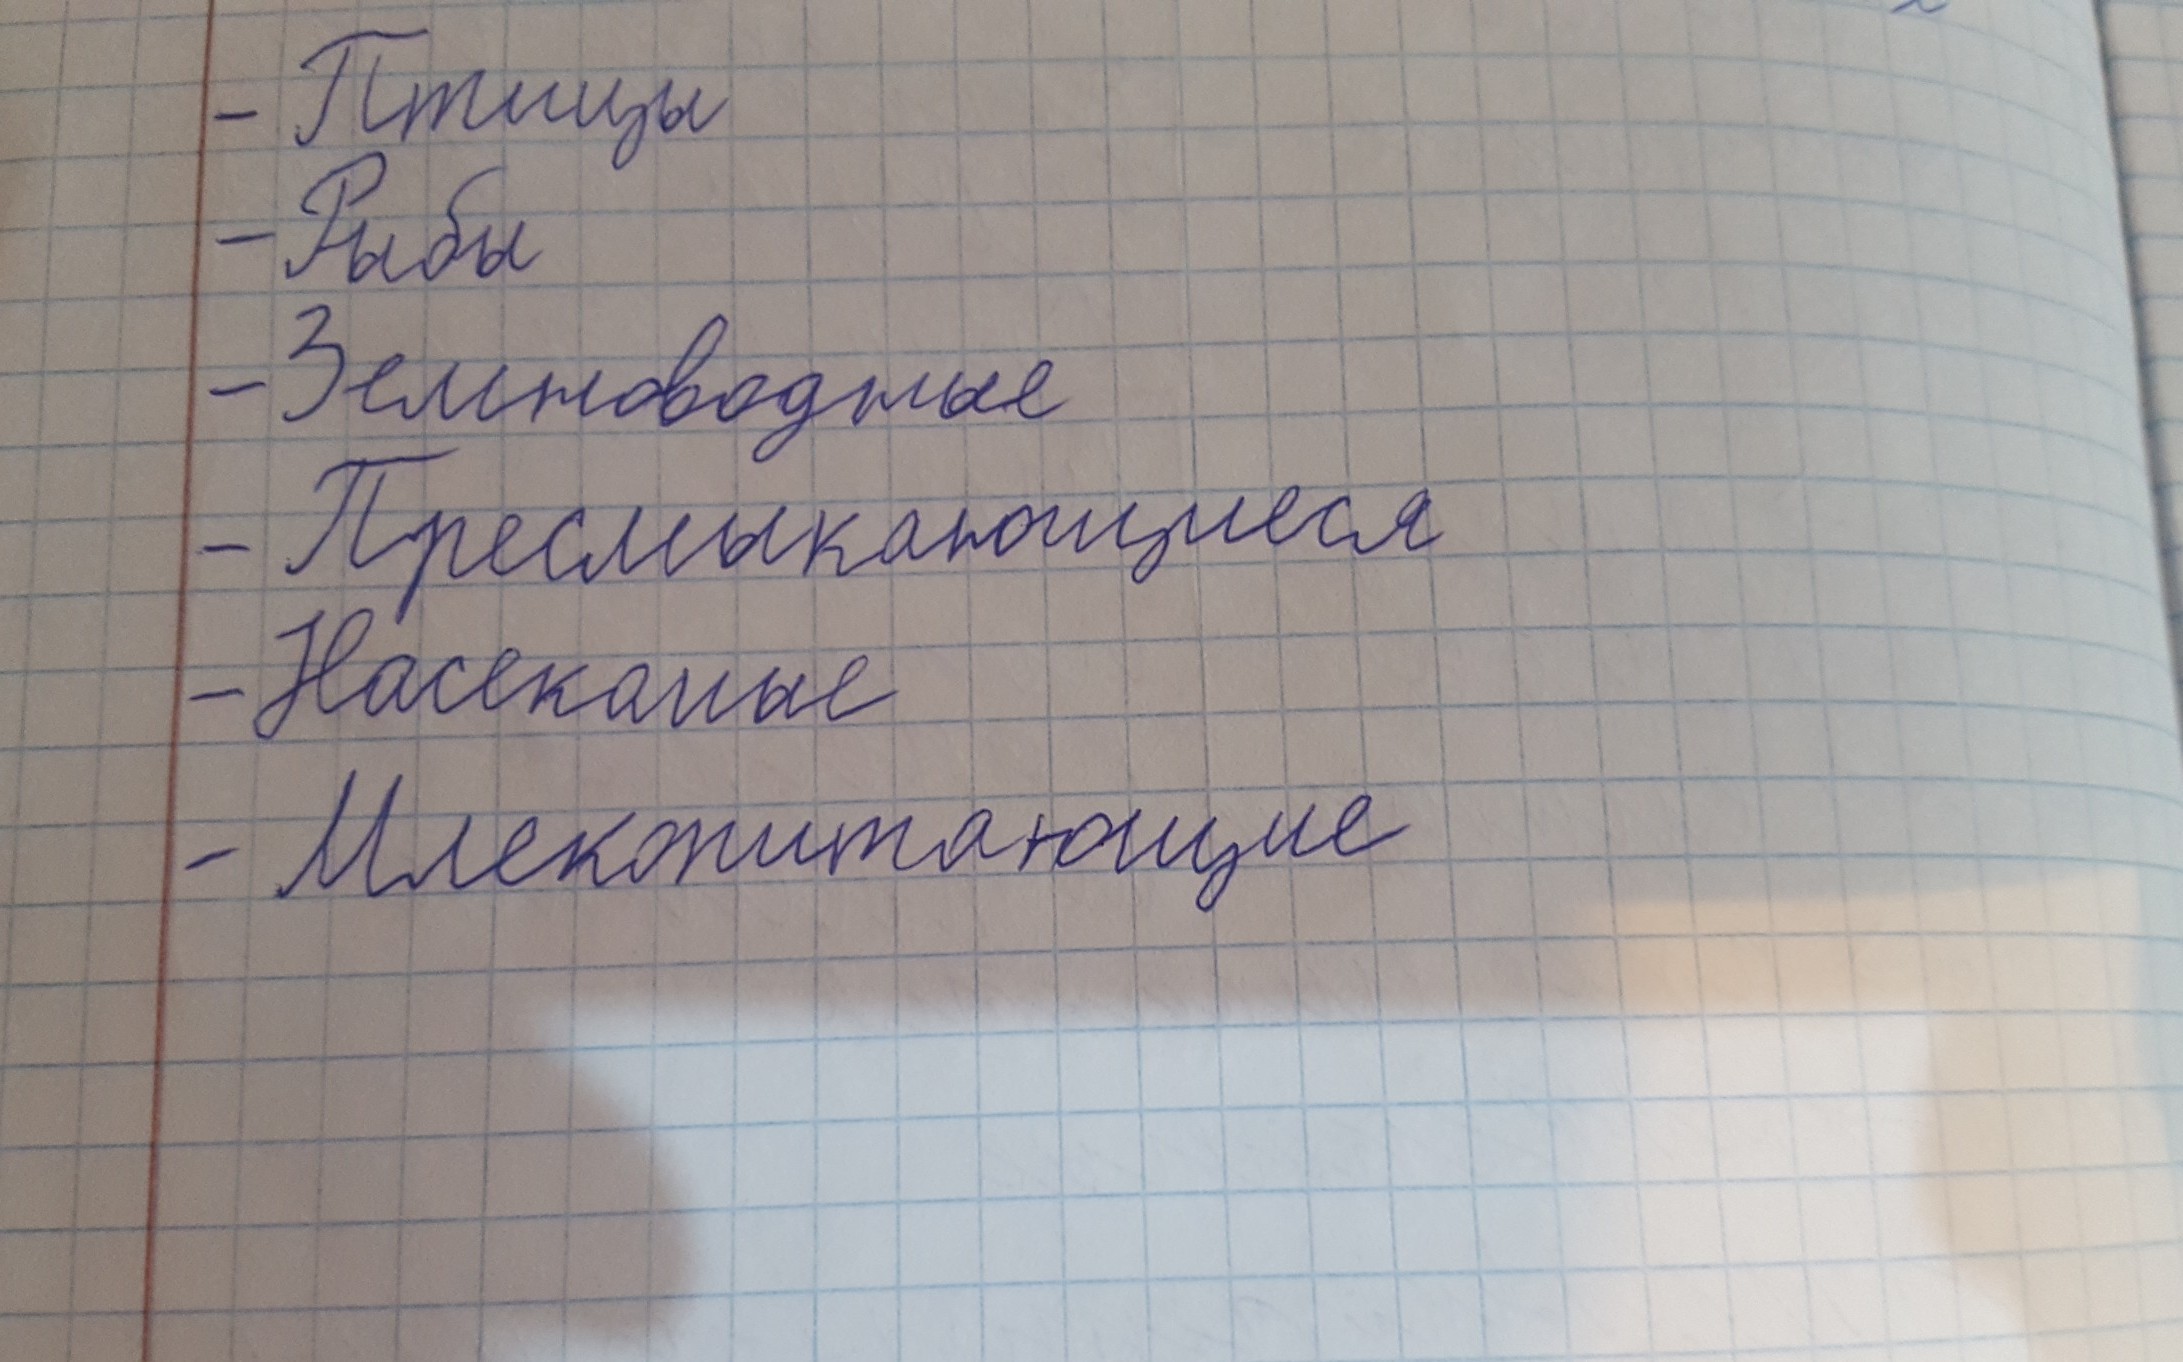 - Птицы
- Рыбы
- Земноводные
- Пресмыкающиеся
- Насекомые
- Млекопитающие